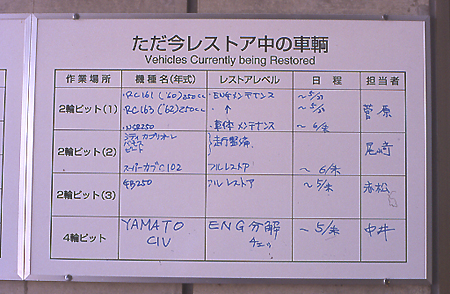 ただ今レストア中の車輌
Vehicles Currently being Restored
作業場所 機種名(年式) レストアレベル 日程 担当者
2輪ピット(1) ・RC161 ('60) 250cc ・ENGメンテナンス ～5/31 菅原
・RC163 ('62) 250cc ・ ↑ ～5/31
・NSR250 ・車体メンテナンス ～6/末
2輪ピット(2) シティカブリオレ 走行整備 尾崎
ビート
スーパーカブC102 フルレストア ～6/末
2輪ピット(3) フルレストア ～5/末 赤松
4輪ピット YAMATO ENG分解 ～5/末 中井
CIV